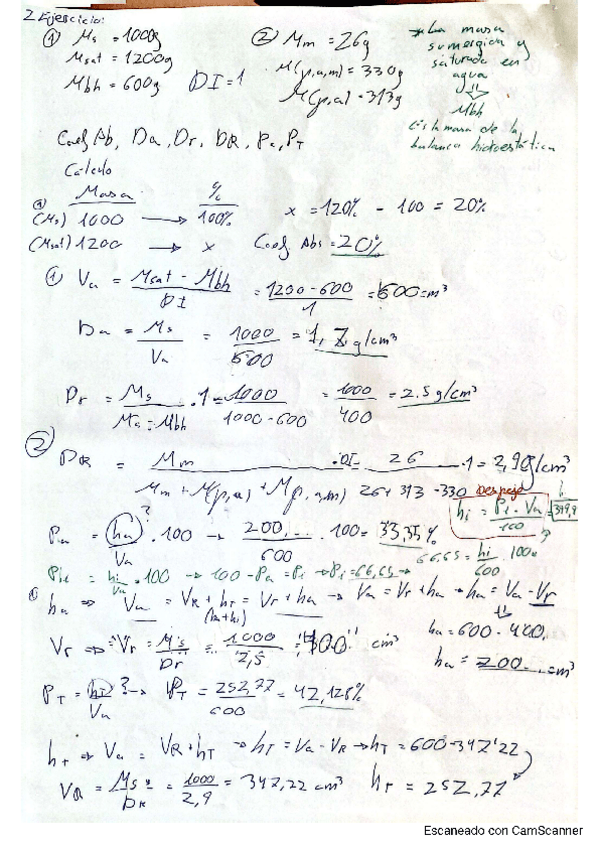 2 Ejercicio:
① Ms = 1000g
Msat = 1200g
Mbh = 600g DI = 1
② Mm = 26g
M(p,a,m) = 330g
M(p,a) = 313g
*La masa
sumergida y
saturada en
agua
Mbh
es la masa de la
balanza hidrostática
Coef Ab, Da, Dr, DR, Pa, PT
Calculo
Masa %
(Ms) 1000 → 100% x = 120% - 100 = 20%
(Msat) 1200 → x Coef. Abs = 20%
① Va = Msat - Mbh / DI = 1200 - 600 / 1 = 600 cm³
Da = Ms / Va = 1000 / 600 = 1,7 g/cm³
Dr = Ms / Ms - Mbh . 1 = 1000 / 1000 - 600 = 1000 / 400 = 2.5 g/cm³
② DR = Mm / Mm + M(p,a) + M(p,a,m) . DI = 26 / 26 + 313 - 330 . 1 = 2,9 g/cm³
Despeje
hi = Pi . Va / 100 = 399,9
Pa = ha / Va . 100 → 200,... / 600 . 100 = 33,35%
66,65 = hi / 600 . 100
Pi = hi / Va . 100 → 100 - Pa = Pi → Pi = 66,65 →
① ha ⇒ Va = VR + hT = Vr + ha → Va = Vr + ha → ha = Va - Vr
(ha + hi)
Vr ⇒ Vr = Ms / Dr = 1000 / 2,5 = "400" cm³
ha = 600 - 400,
ha = 200... cm³
PT = hT / Va ? → PT = 252,77 / 600 = 42,128%
hT → Va = VR + hT → hT = Va - VR → hT = 600 - 347'22
VR = Ms / DR = 1000 / 2,9 = 347,22 cm³ hT = 252,77
Escaneado con CamScanner